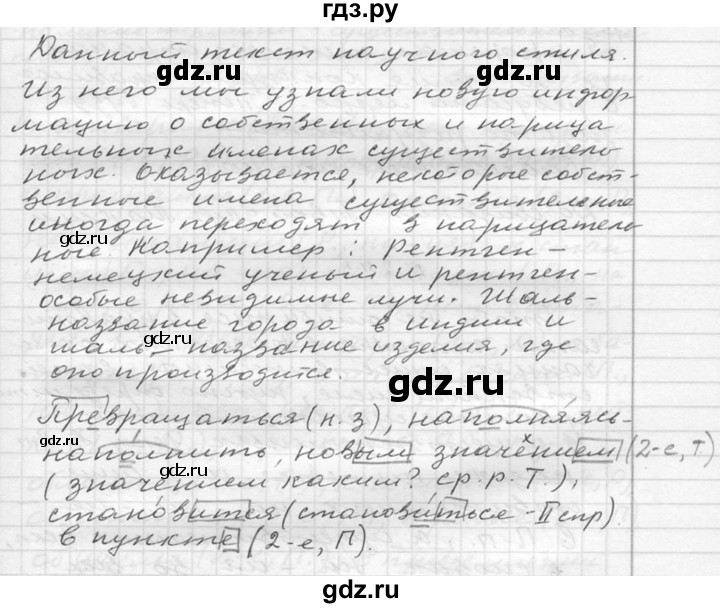 гдз.ру
Данный текст научного стиля.
gdz.ru gdz.ru
Из него мы узнали новую инфор
мацию о собственных и нарица
тельных именах существитель
ных. Оказывается, некоторые собст-
венные имена существительные
иногда переходят в нарицатель
gdz.ru
ные. Например: Рентген -
немецкий ученый и рентген-
особые невидимые лучи. Шаль-
название города в Индии и
шаль - название изделия, где
оно производится.
gdz.ru
Превращаться (н. з), наполняясь-
gdz.ru
наполнить, новыми значением (2-е, Т)
(значением каким? ср. р. Т.),
gdz.ru gdz.ru
становится (становиться - II спр).
в пункте (2-е, П).
gdz.ru